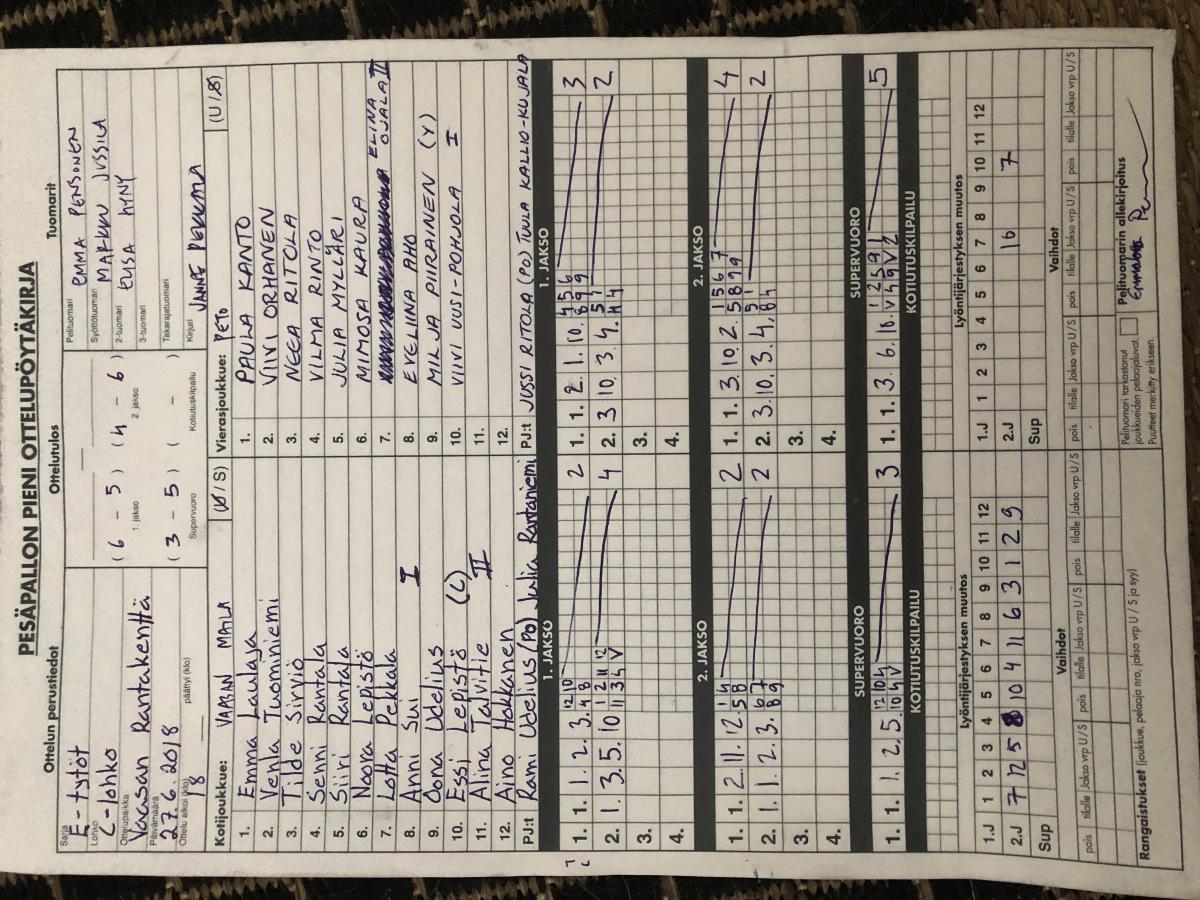 PESÄPALLON PIENI OTTELUPÖYTÄKIRJA
Ottelun perustiedot
Sarja
E-tytöt
Lohko
C-lohko
Ottelupaikka
Vaasan Rantakenttä
Päivämäärä
27.6.2018
Ottelu alkoi (klo) päättyi (klo)
18
Ottelutulos
( 6 - 5 ) ( 4 - 6 )
1. jakso 2. jakso
( 3 - 5 ) ( - )
Supervuoro Kotiutuskilpailu
Tuomarit
Pelituomari EMMA PENSONEN
Syöttötuomari MARKKU JUSSILA
2-tuomari ELISA HYNY
3-tuomari
Takarajatuomari
Kirjuri JANNE PERUMA
Kotijoukkue: VAASAN MAILA (U / S)
1. Emma Laulaja
2. Venla Tuominiemi
3. Tilde Sirviö
4. Senni Rantala
5. Siiri Rantala
6. Noora Lepistö
7. Lotta Pekkala
8. Anni Sui I
9. Oona Udelius
10. Essi Lepistö (L)
11. Alina Talvitie II
12. Aino Hakkanen
PJ:t Rami Udelius (PO) Julia Rantaniemi
Vierasjoukkue: PETO (U / S)
1. PAULA KANTO
2. VIIVI ORHANEN
3. NEEA RITOLA
4. VILMA RINTO
5. JULIA MYLLÄRI
6. MIMOSA KAURA
7. ELINA OJALA II
8. EVELIINA AHO
9. MILJA PIIRAINEN (Y)
10. VIIVI UUSI-POHJOLA I
11.
12.
PJ:t JUSSI RITOLA (PO) TUULA KALLIO-KUJALA
1. JAKSO
1. 1. 1. 2. 3. 4 8 12 10 2
2. 1. 3. 5. 10 11 3 4 V 1 2 11 12 4
3.
4.
1. JAKSO
1. 1. 2. 1. 10. 8 9 9 4 5 6 3
2. 3 10. 3. 4. H 4 5 1 2
3.
4.
2. JAKSO
1. 1. 2. 11. 12. 5 8 1 4 2
2. 1. 1. 2. 3. 8 9 6 7 2
3.
4.
2. JAKSO
1. 1. 3. 10. 2. 5 8 9 9 1 5 6 7 4
2. 3. 10. 3. 4. 8 4 5 1 2
3.
4.
SUPERVUORO
1. 1. 1. 2. 5. 10 4 V 12 10 4 3
SUPERVUORO
1. 1. 3. 6. 10. V 4 9 V 2 1 2 5 9 1 5
KOTIUTUSKILPAILU
KOTIUTUSKILPAILU
Lyöntijärjestyksen muutos
1.J 1 2 3 4 5 6 7 8 9 10 11 12
2.J 7 12 5 8 10 4 11 6 3 1 2 9
Sup
Lyöntijärjestyksen muutos
1.J 1 2 3 4 5 6 7 8 9 10 11 12
2.J 16 7
Sup
Vaihdot
pois tilalle Jakso vrp U / S pois tilalle Jakso vrp U / S pois tilalle Jakso vrp U / S
Vaihdot
pois tilalle Jakso vrp U / S pois tilalle Jakso vrp U / S pois tilalle Jakso vrp U / S
Rangaistukset (joukkue, pelaaja nro, jakso vrp U / S ja syy)
Pelituomari tarkastanut
joukkueiden pelaajaluvat.
Puutteet merkitty erikseen.
Pelituomarin allekirjoitus